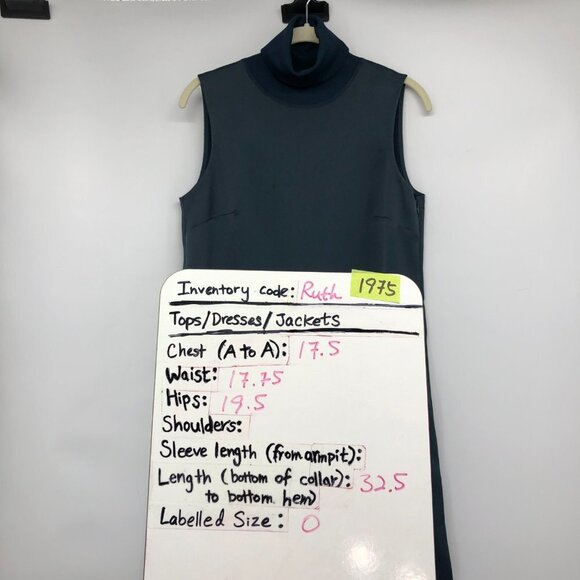 Inventory code: Ruth 1975
Tops/Dresses/Jackets
Chest (A to A): 17.5
Waist: 17.75
Hips: 19.5
Shoulders:
Sleeve length (from armpit):
Length (bottom of collar): 32.5
to bottom hem)
Labelled Size: 0